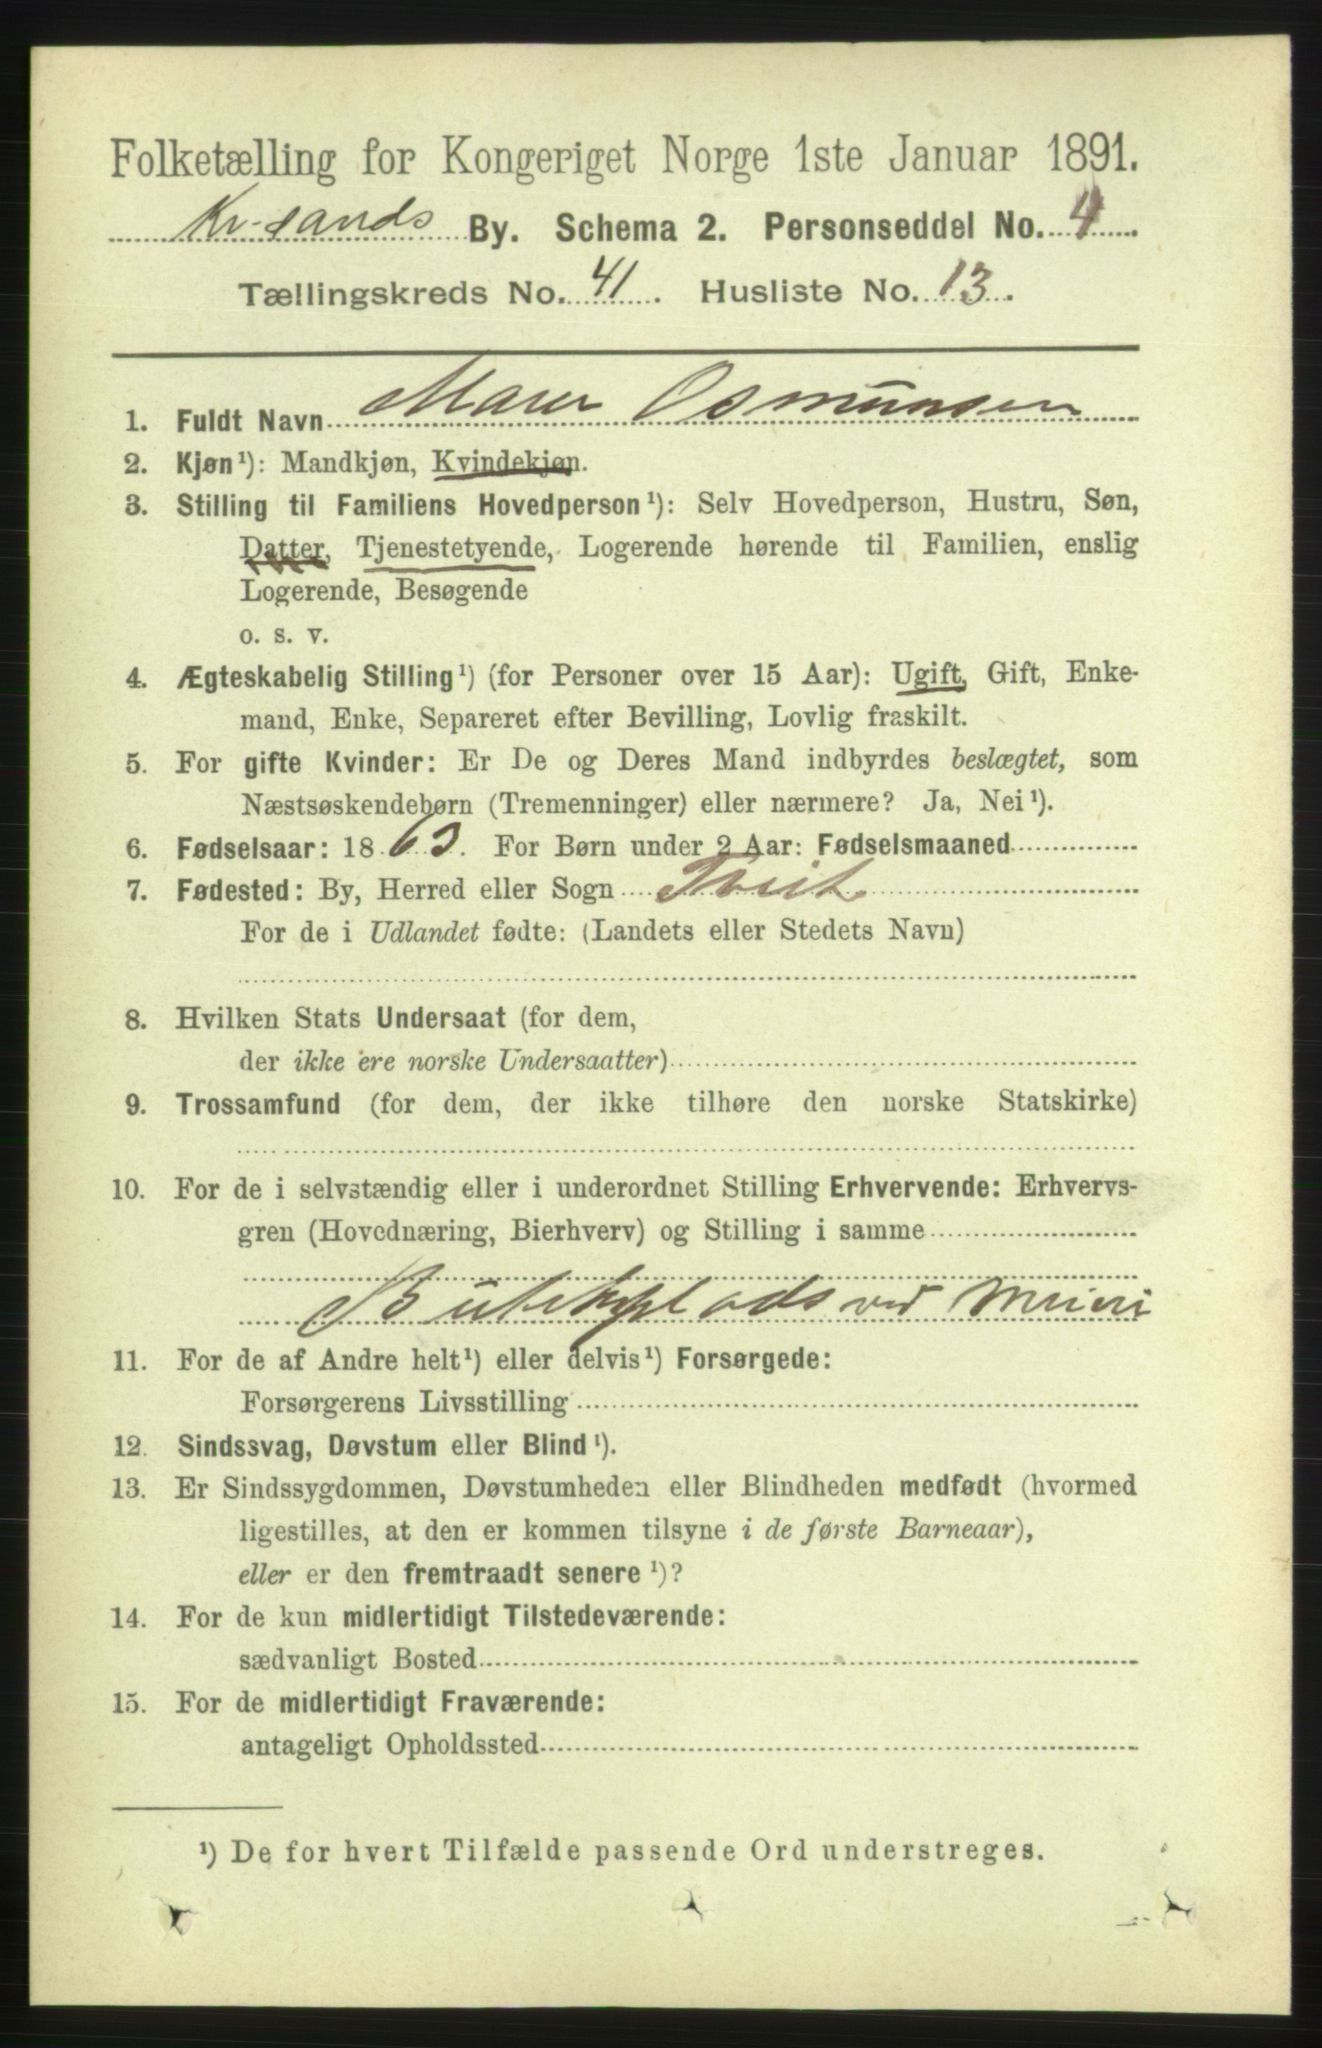 Folketælling for Kongeriget Norge 1ste Januar 1891.
Kr.sands By. Schema 2. Personseddel No. 4
Tællingskreds No. 41. Husliste No. 13.
1. Fuldt Navn Maren Osmunsen
2. Kjøn¹): Mandkjøn, Kvindekjøn.
3. Stilling til Familiens Hovedperson¹): Selv Hovedperson, Hustru, Søn,
Datter, Tjenestetyende, Logerende hørende til Familien, enslig
Logerende, Besøgende
o. s. v.
4. Ægteskabelig Stilling¹) (for Personer over 15 Aar): Ugift, Gift, Enke-
mand, Enke, Separeret efter Bevilling, Lovlig fraskilt.
5. For gifte Kvinder: Er De og Deres Mand indbyrdes beslægtet, som
Næstsøskendebørn (Tremenninger) eller nærmere? Ja, Nei¹).
6. Fødselsaar: 1863. For Børn under 2 Aar: Fødselsmaaned
7. Fødested: By, Herred eller Sogn Tveit
For de i Udlandet fødte: (Landets eller Stedets Navn)
8. Hvilken Stats Undersaat (for dem,
der ikke ere norske Undersaatter)
9. Trossamfund (for dem, der ikke tilhøre den norske Statskirke)
10. For de i selvstændig eller i underordnet Stilling Erhvervende: Erhvervs-
gren (Hovednæring, Bierhverv) og Stilling i samme
ved Meieri
11. For de af Andre helt¹) eller delvis¹) Forsørgede:
Forsørgerens Livsstilling
12. Sindssvag, Døvstum eller Blind¹).
13. Er Sindssygdommen, Døvstumheden eller Blindheden medfødt (hvormed
ligestilles, at den er kommen tilsyne i de første Barneaar),
eller er den fremtraadt senere¹)?
14. For de kun midlertidigt Tilstedeværende:
sædvanligt Bosted
15. For de midlertidigt Fraværende:
antageligt Opholdssted
¹) De for hvert Tilfælde passende Ord understreges.